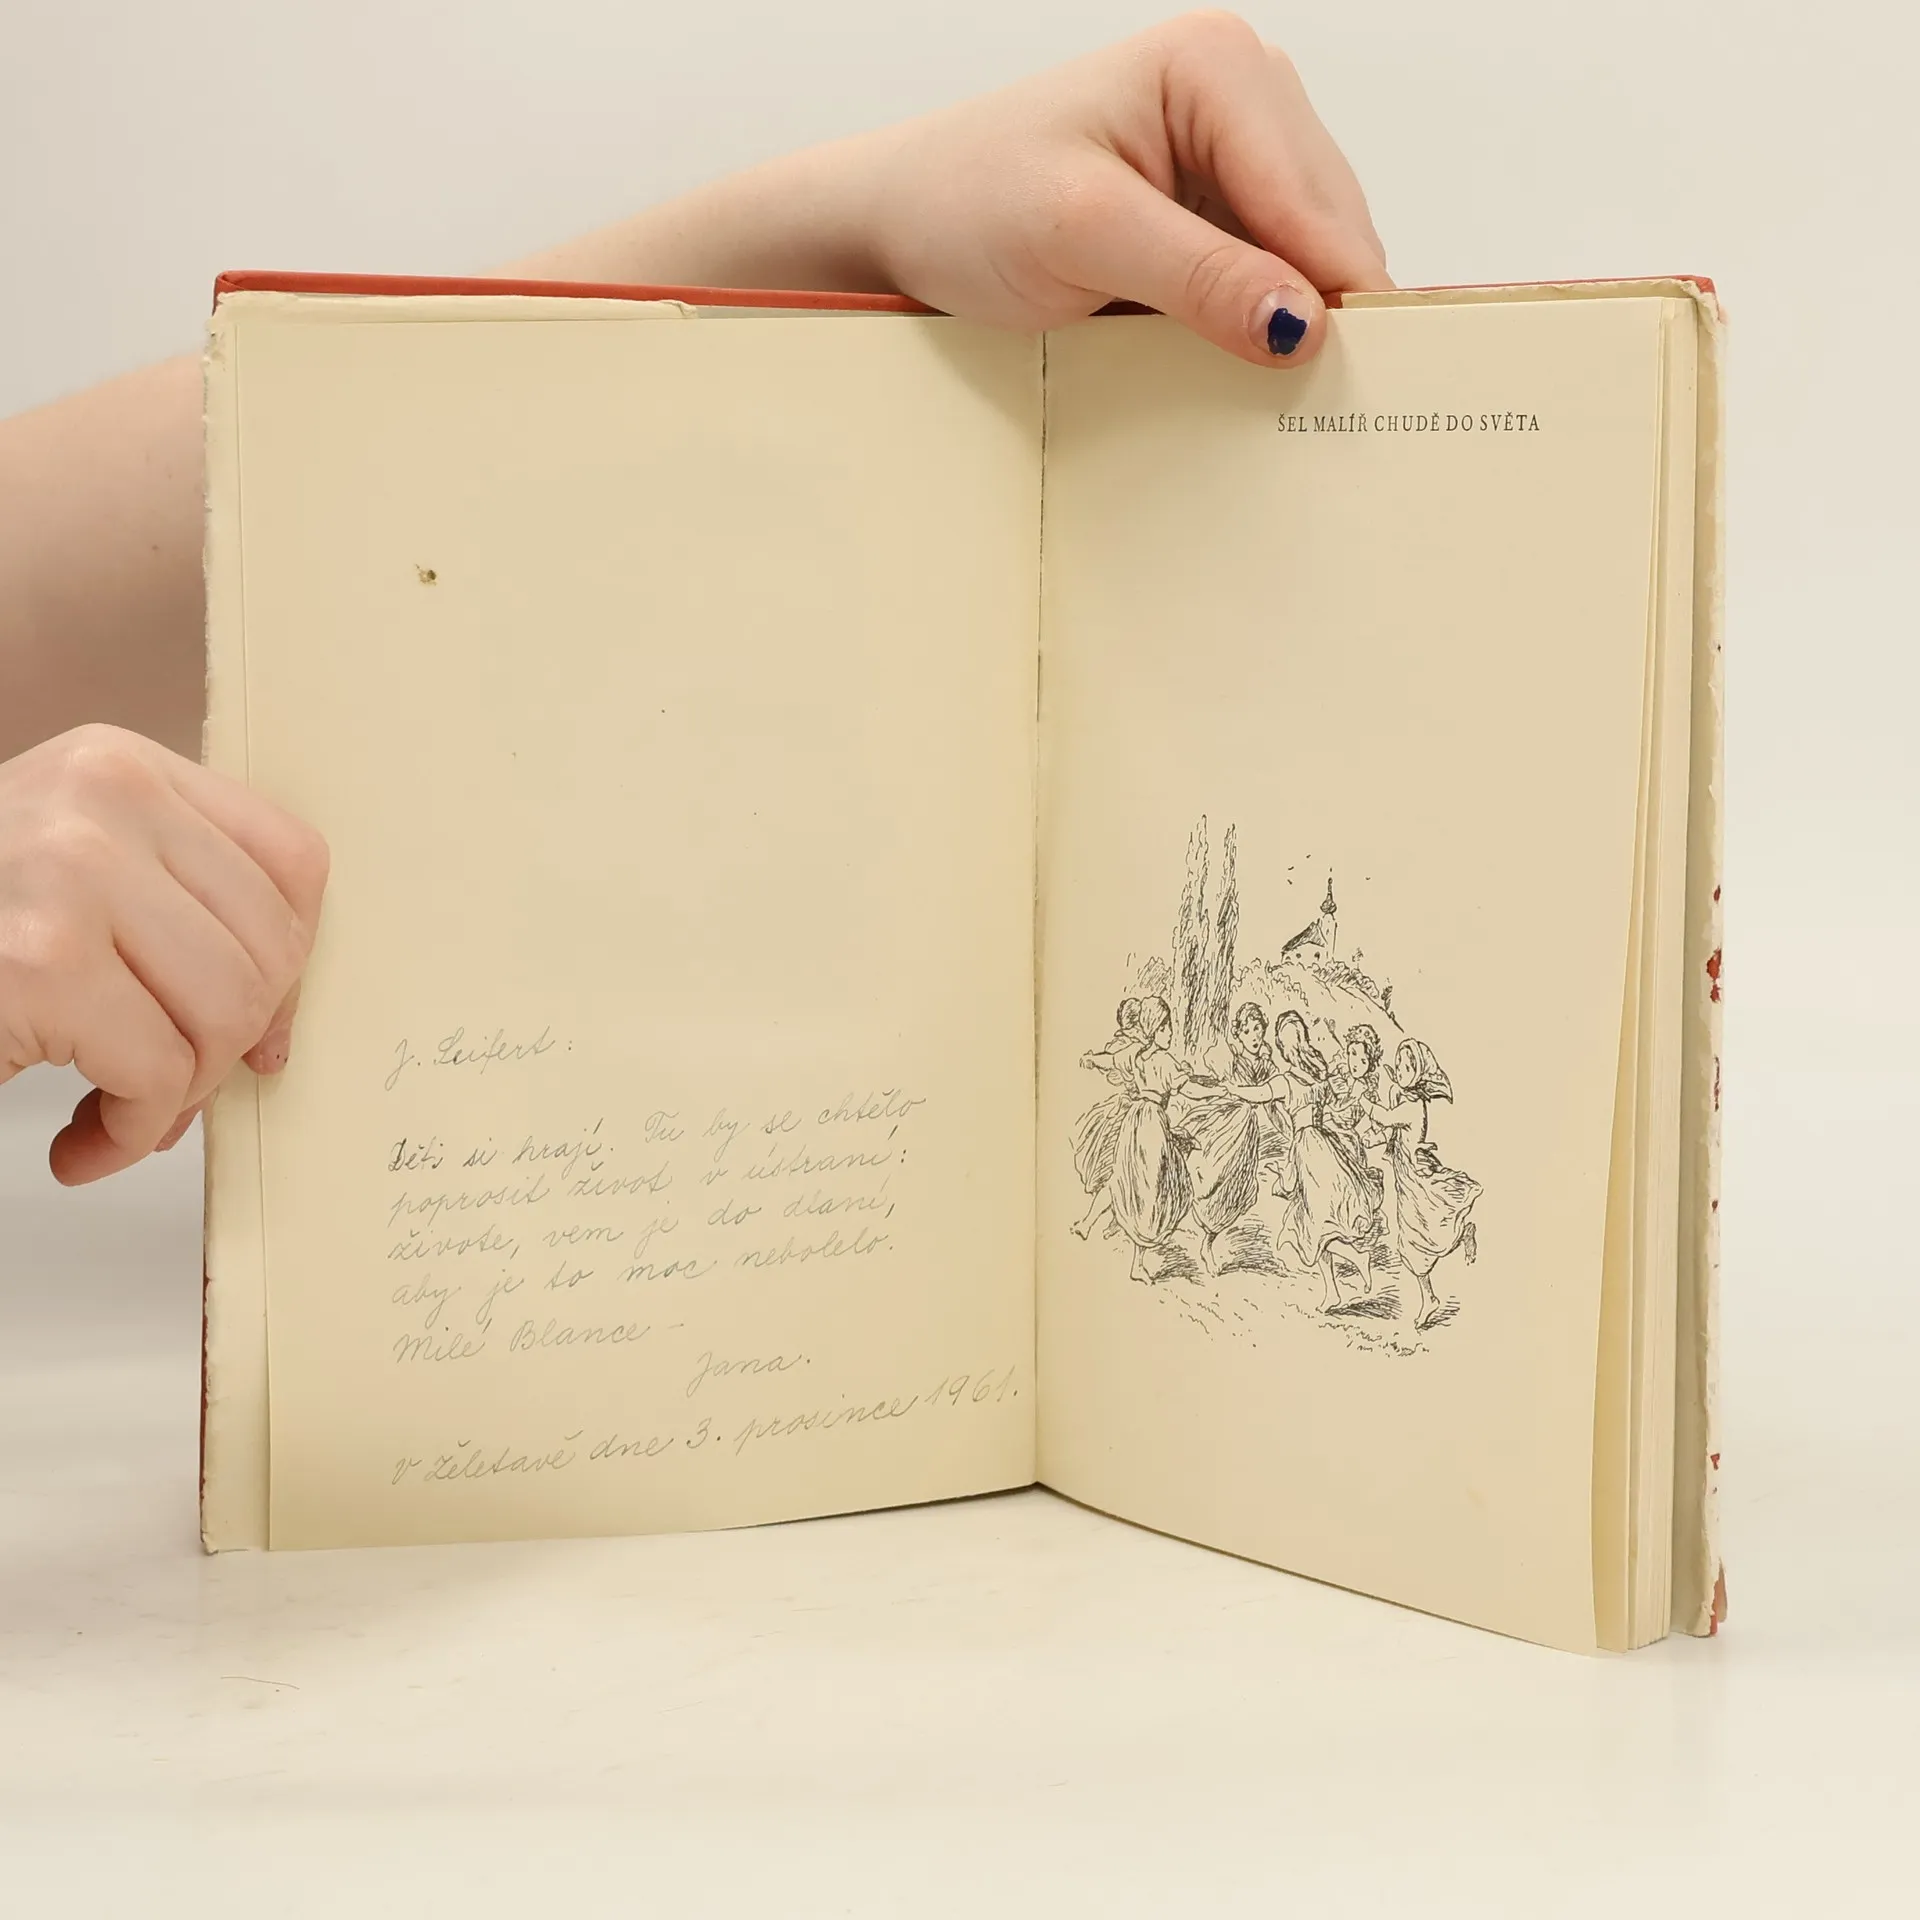 J. Seifert:
Děti si hrají. Tu by se chtělo
poprosit život v ústraní:
živote, vem je do dlaní,
aby je to moc nebolelo.
Milé Blance -
Jana.
v Želetavě dne 3. prosince 1961.
ŠEL MALÍŘ CHUDĚ DO SVĚTA